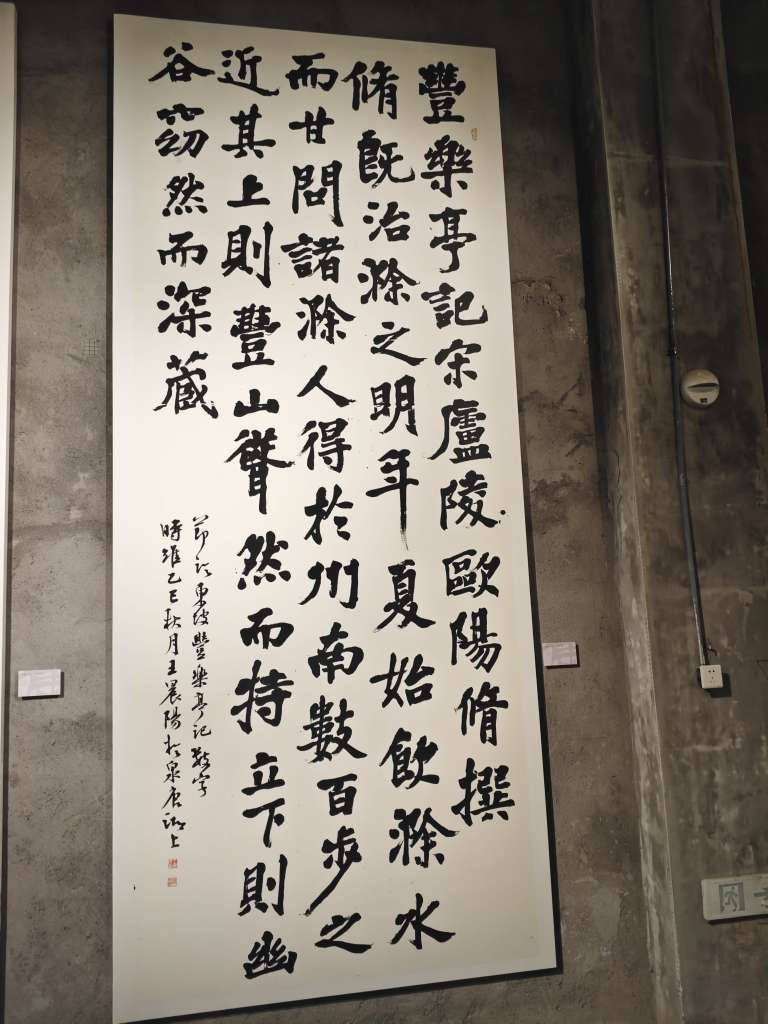 豐樂亭記宋廬陵歐陽脩撰
脩既治滁之明年夏始飲滁水
而甘問諸滁人得於州南數百步之
近其上則豐山聳然而特立下則幽
谷窈然而深藏
節記東坡豐樂亭記數字
時維乙巳秋月王晨陽於泉唐湖上